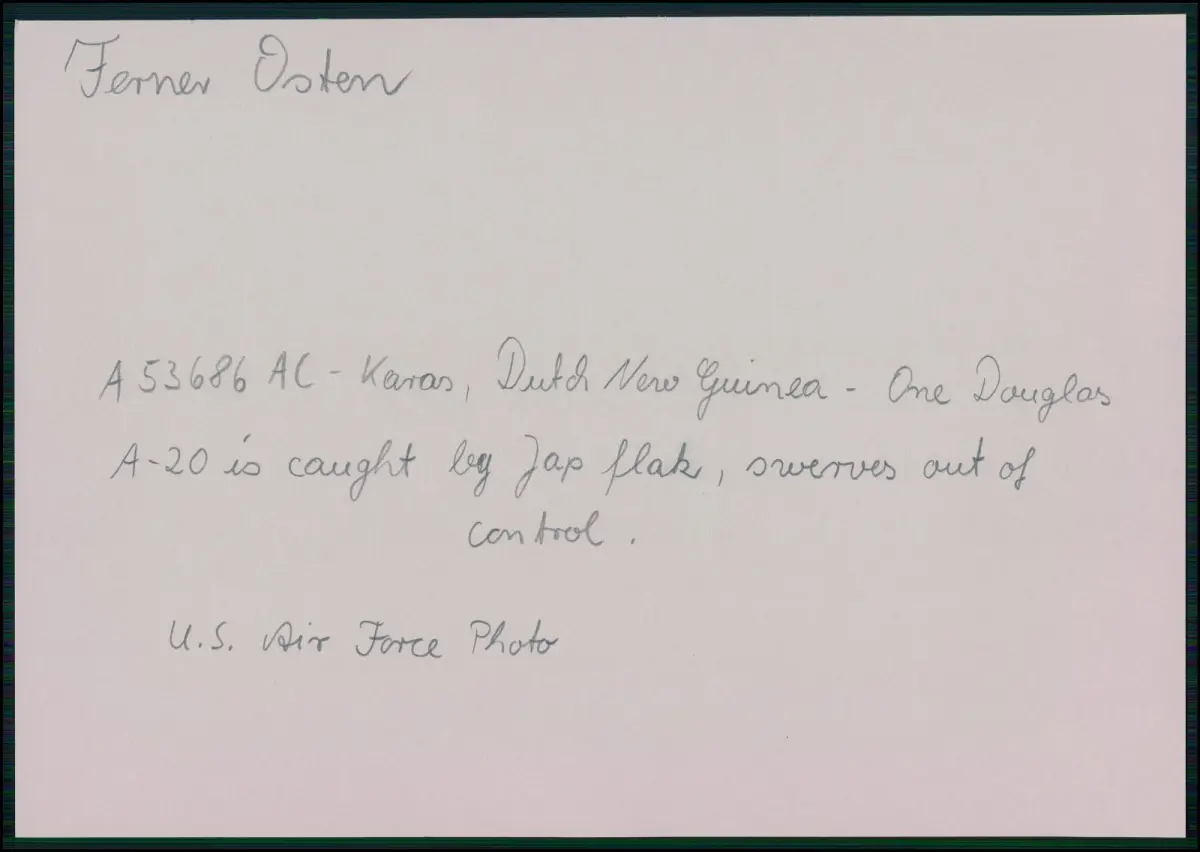 Ferner Osten
A 53686 AC - Karas, Dutch New Guinea - One Douglas
A-20 is caught by Jap flak, swerves out of
control.
U.S. Air Force Photo